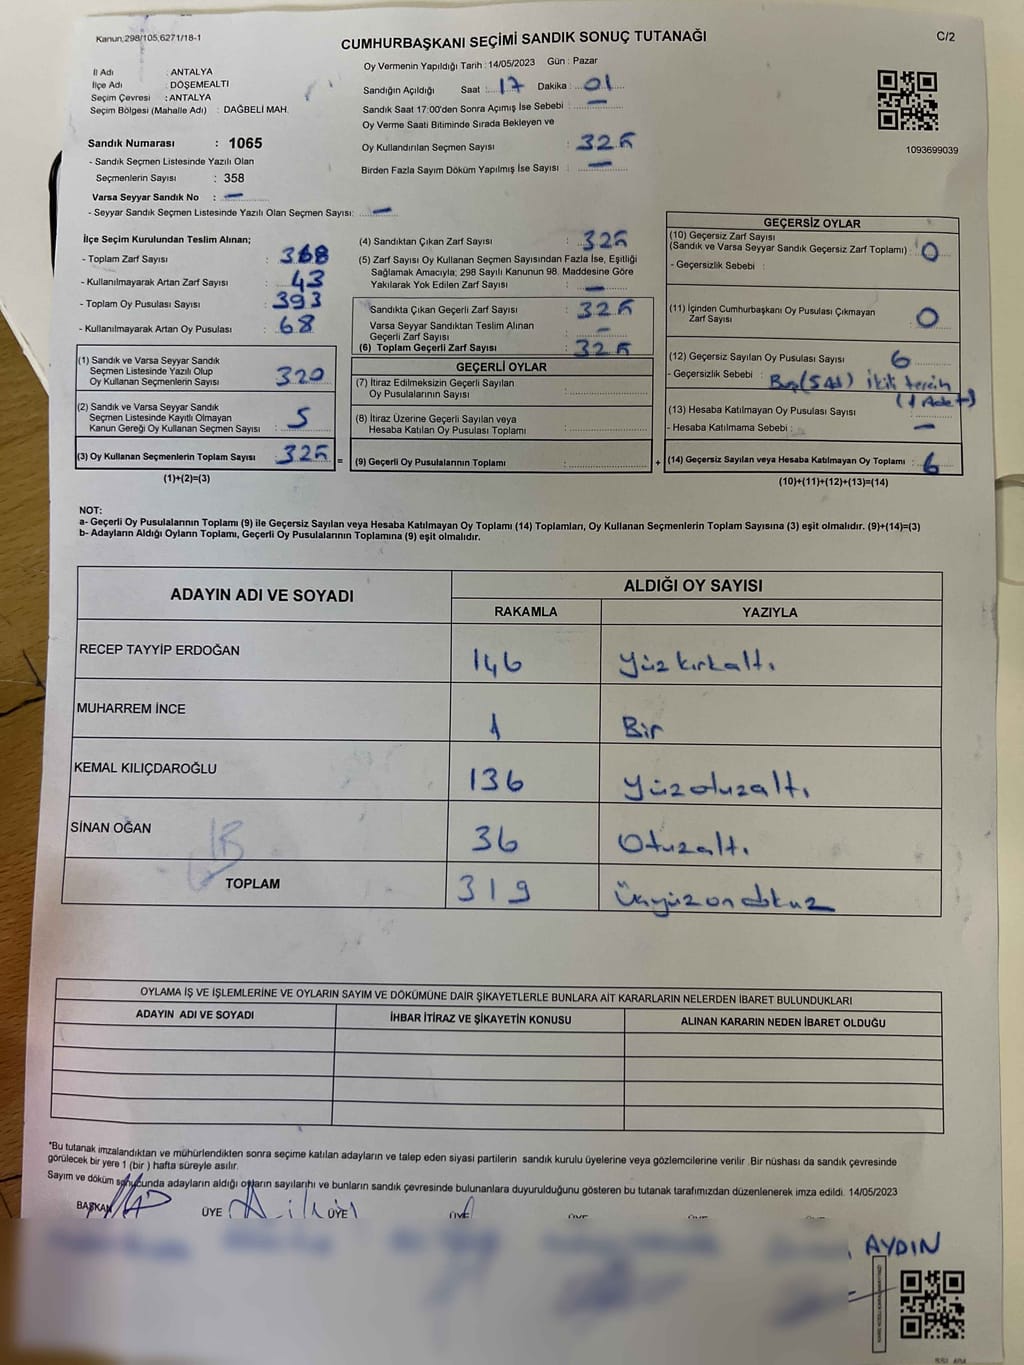 Kanun;298/105,6271/18-1
CUMHURBAŞKANI SEÇİMİ SANDIK SONUÇ TUTANAĞI
C/2
İl Adı : ANTALYA
İlçe Adı : DÖŞEMEALTI
Seçim Çevresi : ANTALYA
Seçim Bölgesi (Mahalle Adı) : DAĞBELİ MAH.
Sandık Numarası : 1065
- Sandık Seçmen Listesinde Yazılı Olan
Seçmenlerin Sayısı : 358
Varsa Seyyar Sandık No : —
- Seyyar Sandık Seçmen Listesinde Yazılı Olan Seçmen Sayısı: —
Oy Vermenin Yapıldığı Tarih : 14/05/2023 Gün : Pazar
Sandığın Açıldığı Saat : 17 Dakika : 01
Sandık Saat 17:00'den Sonra Açımış İse Sebebi : —
Oy Verme Saati Bitiminde Sırada Bekleyen ve
Oy Kullandırılan Seçmen Sayısı : 325
Birden Fazla Sayım Döküm Yapılmış İse Sayısı : —
1093699039
İlçe Seçim Kurulundan Teslim Alınan;
- Toplam Zarf Sayısı : 368
- Kullanılmayarak Artan Zarf Sayısı : 43
- Toplam Oy Pusulası Sayısı : 393
- Kullanılmayarak Artan Oy Pusulası : 68
(1) Sandık ve Varsa Seyyar Sandık
Seçmen Listesinde Yazılı Olup
Oy Kullanan Seçmenlerin Sayısı : 320
(2) Sandık ve Varsa Seyyar Sandık
Seçmen Listesinde Kayıtlı Olmayan
Kanun Gereği Oy Kullanan Seçmen Sayısı : 5
(3) Oy Kullanan Seçmenlerin Toplam Sayısı : 325 =
(1)+(2)=(3)
(4) Sandıktan Çıkan Zarf Sayısı : 325
(5) Zarf Sayısı Oy Kullanan Seçmen Sayısından Fazla İse, Eşitliği
Sağlamak Amacıyla; 298 Sayılı Kanunun 98. Maddesine Göre
Yakılarak Yok Edilen Zarf Sayısı : —
Sandıkta Çıkan Geçerli Zarf Sayısı : 325
Varsa Seyyar Sandıktan Teslim Alınan
Geçerli Zarf Sayısı : -
(6) Toplam Geçerli Zarf Sayısı : 325
GEÇERLİ OYLAR
(7) İtiraz Edilmeksizin Geçerli Sayılan
Oy Pusulalarının Sayısı :
(8) İtiraz Üzerine Geçerli Sayılan veya
Hesaba Katılan Oy Pusulası Toplamı :
(9) Geçerli Oy Pusulalarının Toplamı : +
GEÇERSİZ OYLAR
(10) Geçersiz Zarf Sayısı
(Sandık ve Varsa Seyyar Sandık Geçersiz Zarf Toplamı) : 0
- Geçersizlik Sebebi :
(11) İçinden Cumhurbaşkanı Oy Pusulası Çıkmayan
Zarf Sayısı : 0
(12) Geçersiz Sayılan Oy Pusulası Sayısı : 6
- Geçersizlik Sebebi : Boş(5 Ad) ikili tercih
(1 Adet)
(13) Hesaba Katılmayan Oy Pusulası Sayısı :
- Hesaba Katılmama Sebebi : —
(14) Geçersiz Sayılan veya Hesaba Katılmayan Oy Toplamı : 6
(10)+(11)+(12)+(13)=(14)
NOT:
a- Geçerli Oy Pusulalarının Toplamı (9) ile Geçersiz Sayılan veya Hesaba Katılmayan Oy Toplamı (14) Toplamları, Oy Kullanan Seçmenlerin Toplam Sayısına (3) eşit olmalıdır. (9)+(14)=(3)
b- Adayların Aldığı Oyların Toplamı, Geçerli Oy Pusulalarının Toplamına (9) eşit olmalıdır.
ADAYIN ADI VE SOYADI
ALDIĞI OY SAYISI
RAKAMLA YAZIYLA
RECEP TAYYİP ERDOĞAN 146 yüzkırkaltı
MUHARREM İNCE 1 Bir
KEMAL KILIÇDAROĞLU 136 yüzotuzaltı
SİNAN OĞAN 36 Otuzaltı
TOPLAM 319 Üçyüzondokuz
OYLAMA İŞ VE İŞLEMLERİNE VE OYLARIN SAYIM VE DÖKÜMÜNE DAİR ŞİKAYETLERLE BUNLARA AİT KARARLARIN NELERDEN İBARET BULUNDUKLARI
ADAYIN ADI VE SOYADI İHBAR İTİRAZ VE ŞİKAYETİN KONUSU ALINAN KARARIN NEDEN İBARET OLDUĞU
*Bu tutanak imzalandıktan ve mühürlendikten sonra seçime katılan adayların ve talep eden siyasi partilerin sandık kurulu üyelerine veya gözlemcilerine verilir .Bir nüshası da sandık çevresinde
görülecek bir yere 1 (bir ) hafta süreyle asılır.
Sayım ve döküm sonucunda adayların aldığı oyların sayılarıhı ve bunların sandık çevresinde bulunanlara duyurulduğunu gösteren bu tutanak tarafımızdan düzenlenerek imza edildi. 14/05/2023
BAŞKAN ÜYE ÜYE
AYDIN